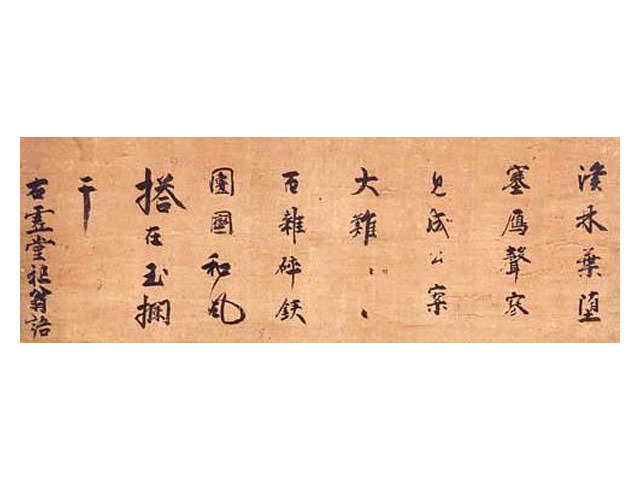 渓木葉堕
塞鴈聲寒
見成公案
大難〻〻
百雜砕鉄
團圞和風
搭在玉欄
干
右虚堂祖翁語